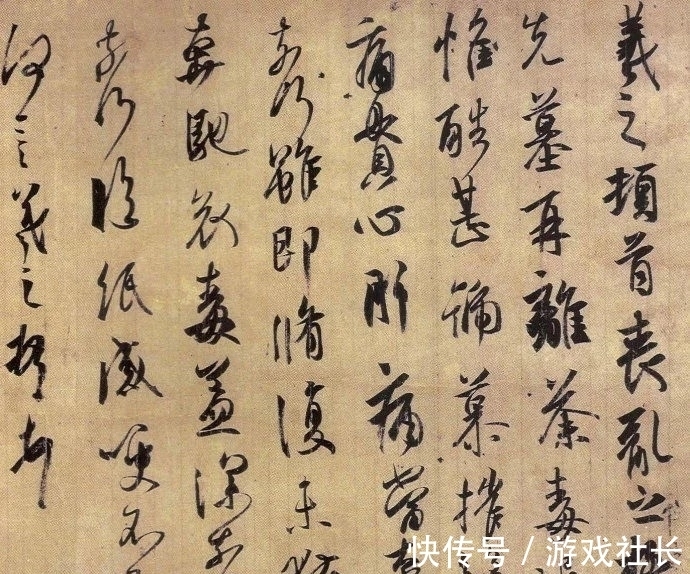 羲之頓首喪亂之
先墓再離荼毒
惟酷甚號慕摧
痛貫心肝痛當柰
柰何雖即脩復未
奔馳哀毒益深柰
柰何臨紙感哽不
何言羲之頓首
快传号 / 游戏社长